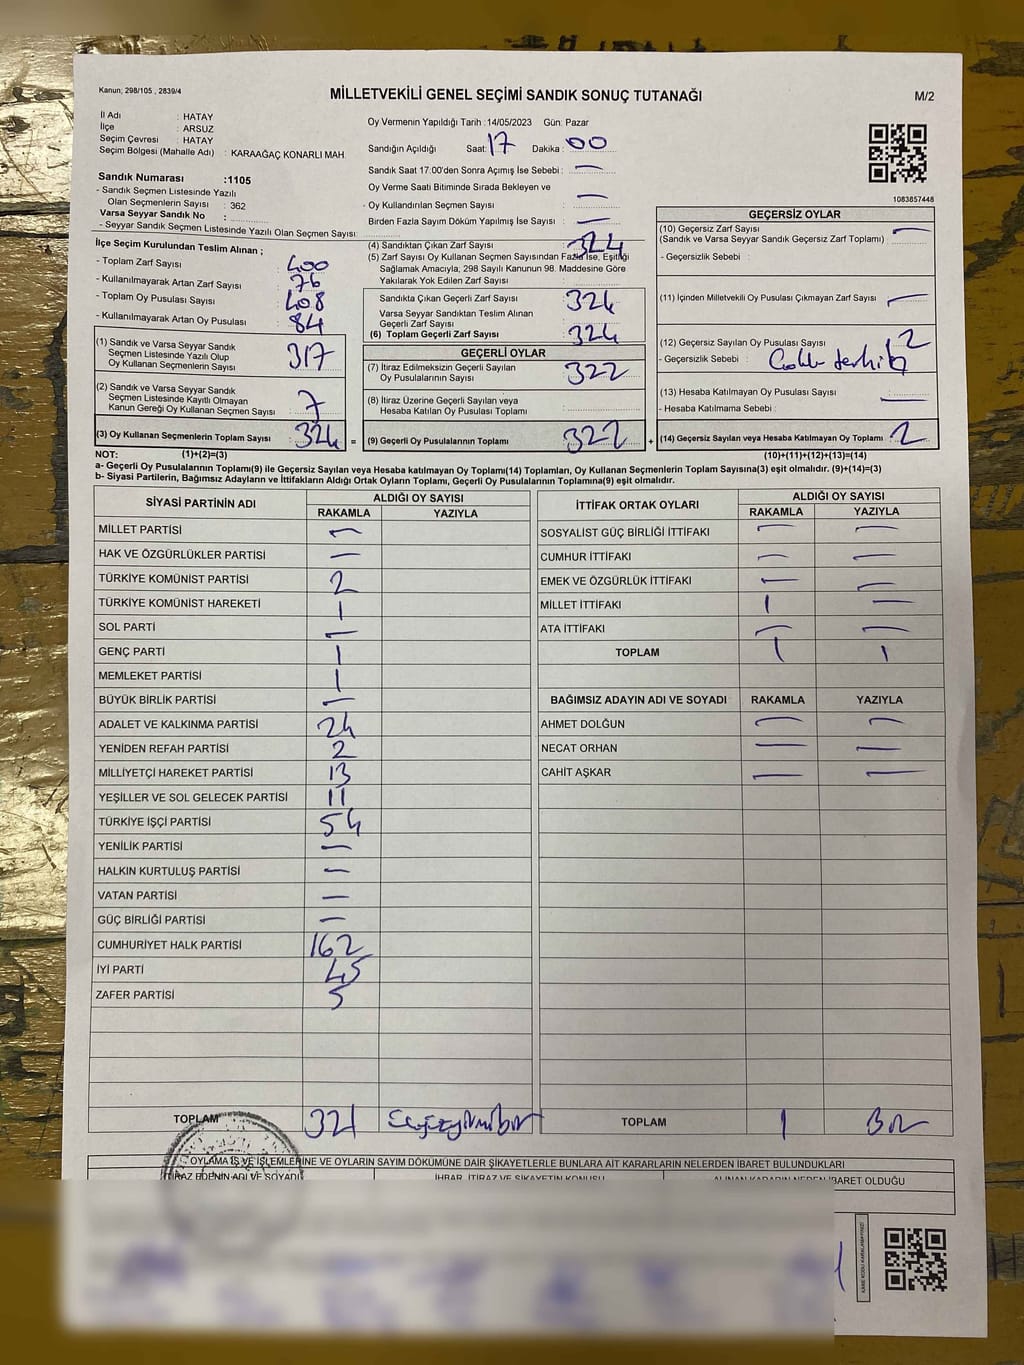 Kanun; 298/105 , 2839/4
MİLLETVEKİLİ GENEL SEÇİMİ SANDIK SONUÇ TUTANAĞI
M/2
İl Adı : HATAY
İlçe : ARSUZ
Seçim Çevresi : HATAY
Seçim Bölgesi (Mahalle Adı) : KARAAĞAÇ KONARLI MAH
Oy Vermenin Yapıldığı Tarih :14/05/2023 Gün: Pazar
Sandığın Açıldığı Saat: 17 Dakika : 00
Sandık Saat 17:00'den Sonra Açımış İse Sebebi : —
Oy Verme Saati Bitiminde Sırada Bekleyen ve
Oy Kullandırılan Seçmen Sayısı : —
Birden Fazla Sayım Döküm Yapılmış İse Sayısı : —
1083857448
Sandık Numarası :1105
- Sandık Seçmen Listesinde Yazılı
Olan Seçmenlerin Sayısı : 362
Varsa Seyyar Sandık No :
- Seyyar Sandık Seçmen Listesinde Yazılı Olan Seçmen Sayısı:
İlçe Seçim Kurulundan Teslim Alınan ;
- Toplam Zarf Sayısı : 400
- Kullanılmayarak Artan Zarf Sayısı : 76
- Toplam Oy Pusulası Sayısı : 408
- Kullanılmayarak Artan Oy Pusulası : 84
(1) Sandık ve Varsa Seyyar Sandık
Seçmen Listesinde Yazılı Olup
Oy Kullanan Seçmenlerin Sayısı : 317
(2) Sandık ve Varsa Seyyar Sandık
Seçmen Listesinde Kayıtlı Olmayan
Kanun Gereği Oy Kullanan Seçmen Sayısı : 7
(3) Oy Kullanan Seçmenlerin Toplam Sayısı : 324 =
(4) Sandıktan Çıkan Zarf Sayısı : 324
(5) Zarf Sayısı Oy Kullanan Seçmen Sayısından Fazla İse, Eşitliği
Sağlamak Amacıyla, 298 Sayılı Kanunun 98. Maddesine Göre
Yakılarak Yok Edilen Zarf Sayısı :
Sandıkta Çıkan Geçerli Zarf Sayısı : 324
Varsa Seyyar Sandıktan Teslim Alınan
Geçerli Zarf Sayısı :
(6) Toplam Geçerli Zarf Sayısı : 324
GEÇERLİ OYLAR
(7) İtiraz Edilmeksizin Geçerli Sayılan
Oy Pusulalarının Sayısı : 322
(8) İtiraz Üzerine Geçerli Sayılan veya
Hesaba Katılan Oy Pusulası Toplamı :
(9) Geçerli Oy Pusulalarının Toplamı : 322 +
GEÇERSİZ OYLAR
(10) Geçersiz Zarf Sayısı : —
(Sandık ve Varsa Seyyar Sandık Geçersiz Zarf Toplamı)
- Geçersizlik Sebebi :
(11) İçinden Milletvekili Oy Pusulası Çıkmayan Zarf Sayısı : —
(12) Geçersiz Sayılan Oy Pusulası Sayısı : 2
- Geçersizlik Sebebi :
(13) Hesaba Katılmayan Oy Pusulası Sayısı : —
- Hesaba Katılmama Sebebi :
(14) Geçersiz Sayılan veya Hesaba Katılmayan Oy Toplamı : 2
NOT: (1)+(2)=(3) (10)+(11)+(12)+(13)=(14)
a- Geçerli Oy Pusulalarının Toplamı(9) ile Geçersiz Sayılan veya Hesaba katılmayan Oy Toplamı(14) Toplamları, Oy Kullanan Seçmenlerin Toplam Sayısına(3) eşit olmalıdır. (9)+(14)=(3)
b- Siyasi Partilerin, Bağımsız Adayların ve İttifakların Aldığı Ortak Oyların Toplamı, Geçerli Oy Pusulalarının Toplamına(9) eşit olmalıdır.
SİYASİ PARTİNİN ADI ALDIĞI OY SAYISI
RAKAMLA YAZIYLA
MİLLET PARTİSİ —
HAK VE ÖZGÜRLÜKLER PARTİSİ —
TÜRKİYE KOMÜNİST PARTİSİ 2
TÜRKİYE KOMÜNİST HAREKETİ 1
SOL PARTİ —
GENÇ PARTİ 1
MEMLEKET PARTİSİ 1
BÜYÜK BİRLİK PARTİSİ —
ADALET VE KALKINMA PARTİSİ 24
YENİDEN REFAH PARTİSİ 2
MİLLİYETÇİ HAREKET PARTİSİ 13
YEŞİLLER VE SOL GELECEK PARTİSİ 11
TÜRKİYE İŞÇİ PARTİSİ 54
YENİLİK PARTİSİ —
HALKIN KURTULUŞ PARTİSİ —
VATAN PARTİSİ —
GÜÇ BİRLİĞİ PARTİSİ —
CUMHURİYET HALK PARTİSİ 162
İYİ PARTİ 45
ZAFER PARTİSİ 5
TOPLAM 321
İTTİFAK ORTAK OYLARI ALDIĞI OY SAYISI
RAKAMLA YAZIYLA
SOSYALİST GÜÇ BİRLİĞİ İTTİFAKI — —
CUMHUR İTTİFAKI — —
EMEK VE ÖZGÜRLÜK İTTİFAKI — —
MİLLET İTTİFAKI 1 —
ATA İTTİFAKI — —
TOPLAM 1 1
BAĞIMSIZ ADAYIN ADI VE SOYADI RAKAMLA YAZIYLA
AHMET DOLĞUN — —
NECAT ORHAN — —
CAHİT AŞKAR — —
TOPLAM 1 Bir
OYLAMA İŞ VE İŞLEMLERİNE VE OYLARIN SAYIM DÖKÜMÜNE DAİR ŞİKAYETLERLE BUNLARA AİT KARARLARIN NELERDEN İBARET BULUNDUKLARI
İTİRAZ EDENİN ADI VE SOYADI İHBAR, İTİRAZ VE ŞİKAYETİN KONUSU ALINAN KARARIN NEDEN İBARET OLDUĞU